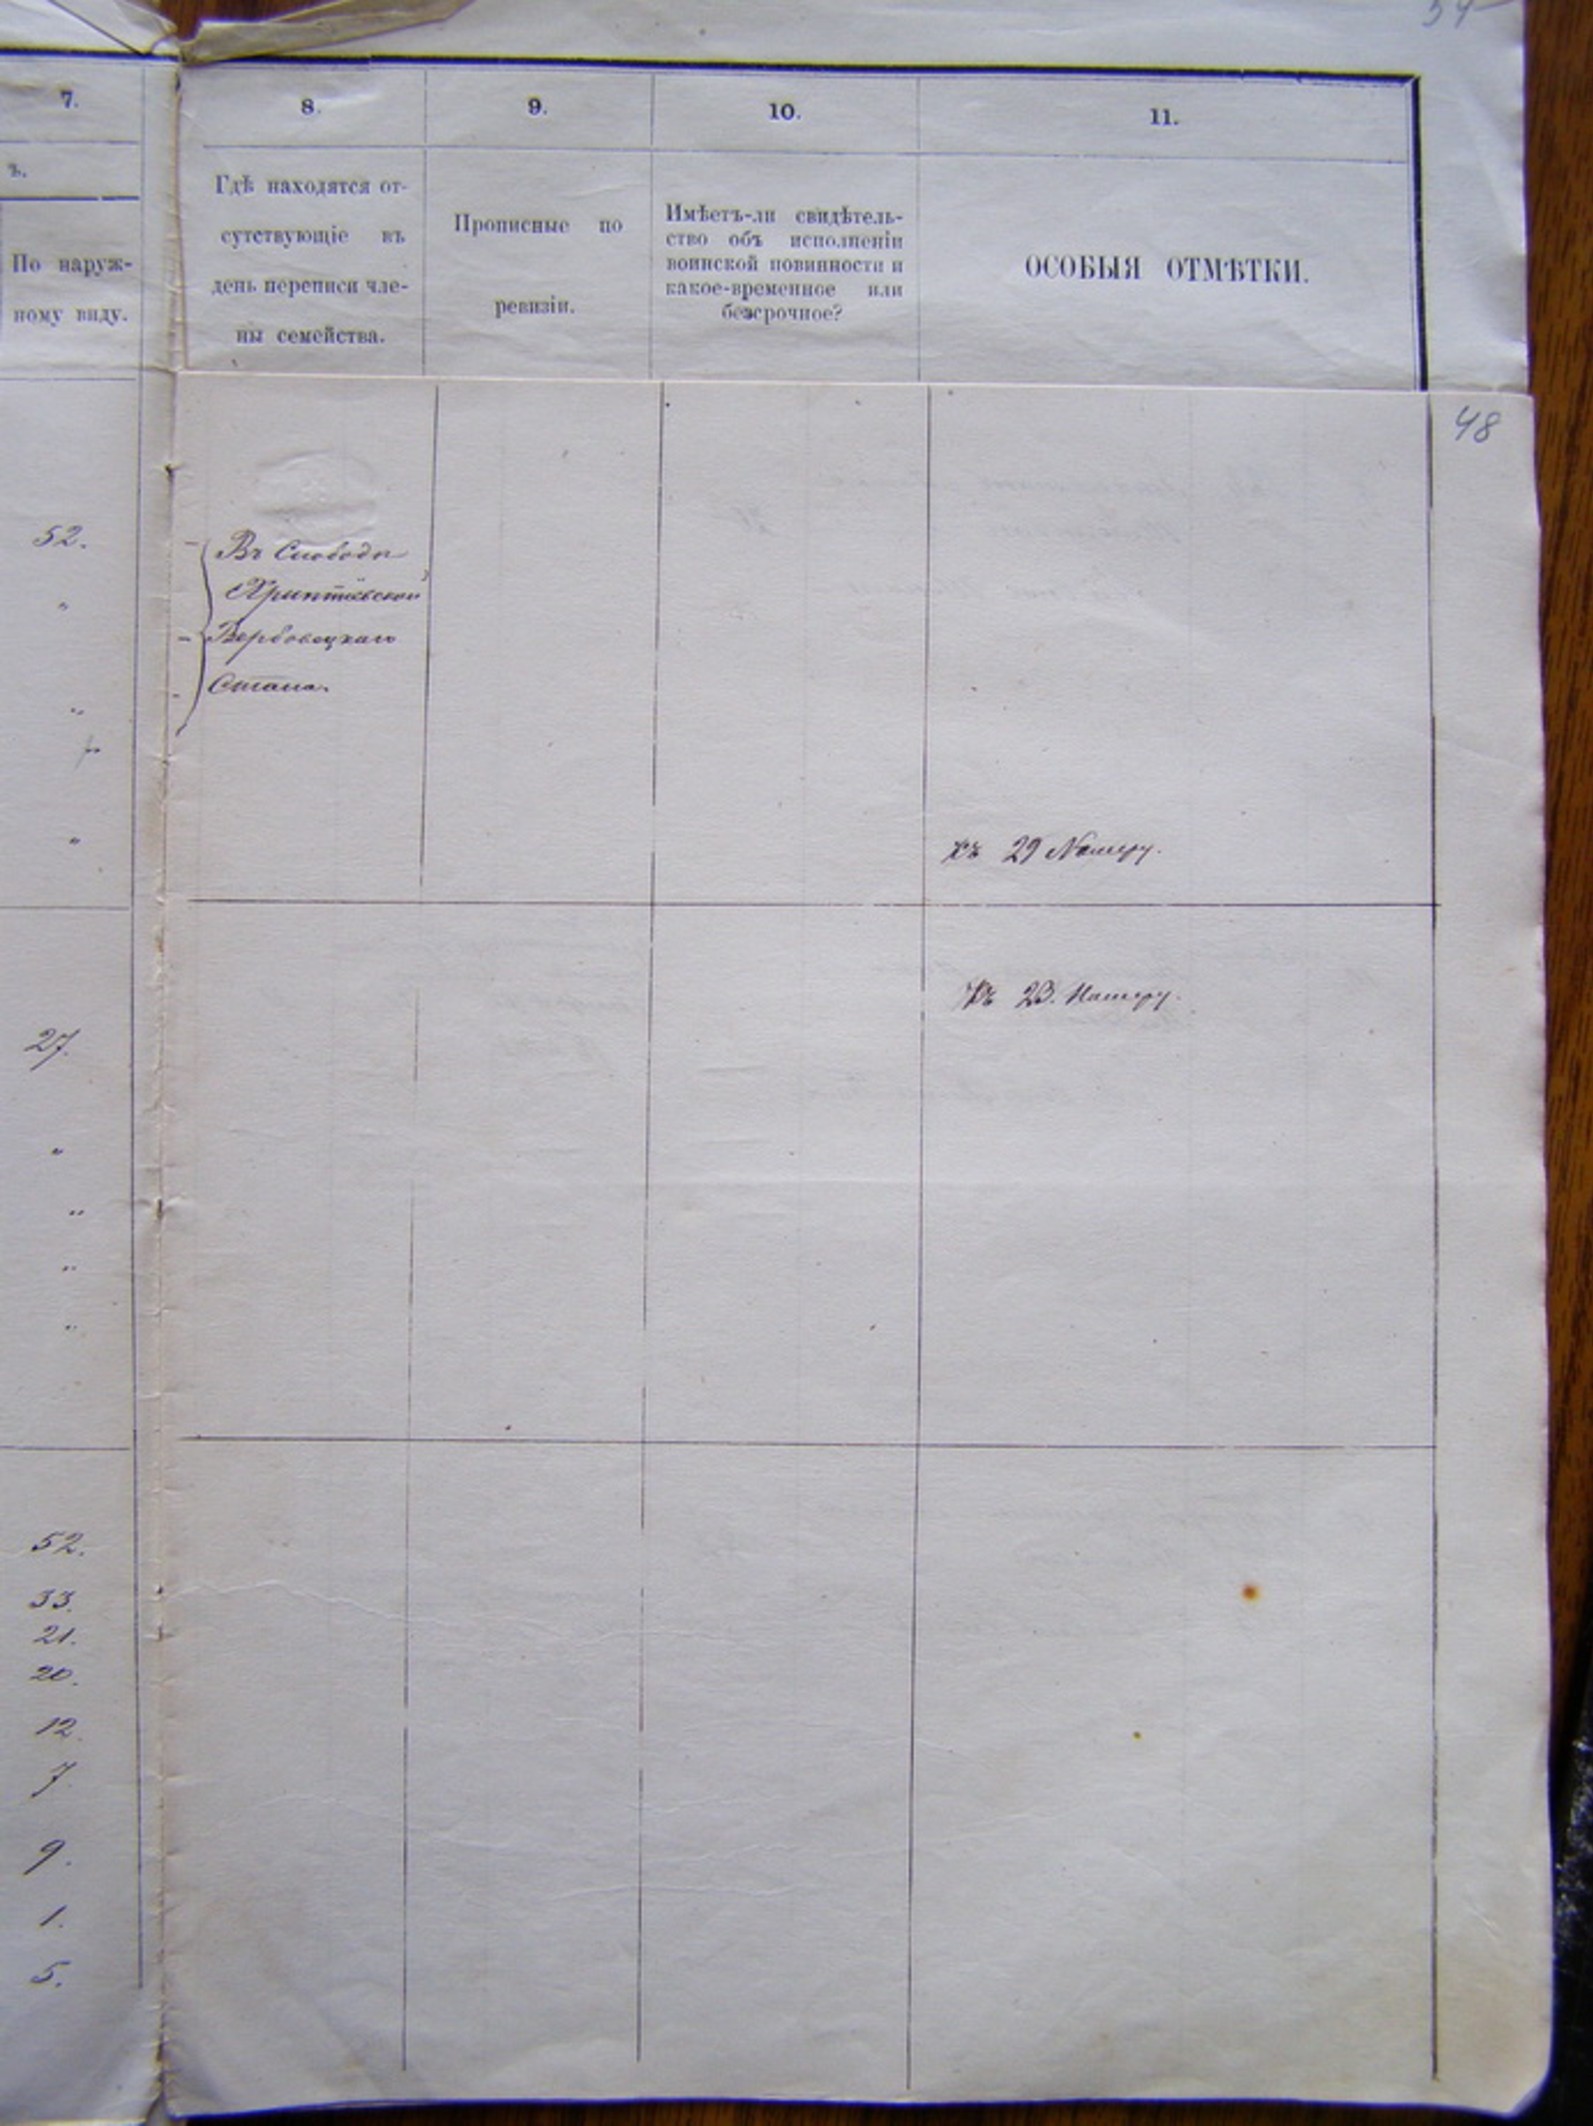 54
7.
8.
9.
10.
11.
ъ.
По наруж-
ному виду.
Гдѣ находятся от-
сутствующіе въ
день переписи чле-
ны семейства.
Прописные по
ревизіи.
Имѣетъ-ли свидѣтель-
ство объ исполненіи
воинской повинности и
какое-временное или
безсрочное?
ОСОБЫЯ ОТМѢТКИ.
48
52.
Въ Слободѣ
Хриптіевской
Вербовецкаго
Стана.
"
"
"
къ 29 Номеру.
Къ 23. Номеру.
27.
"
"
"
"
52.
33.
21.
20.
12.
7.
9.
1.
5.